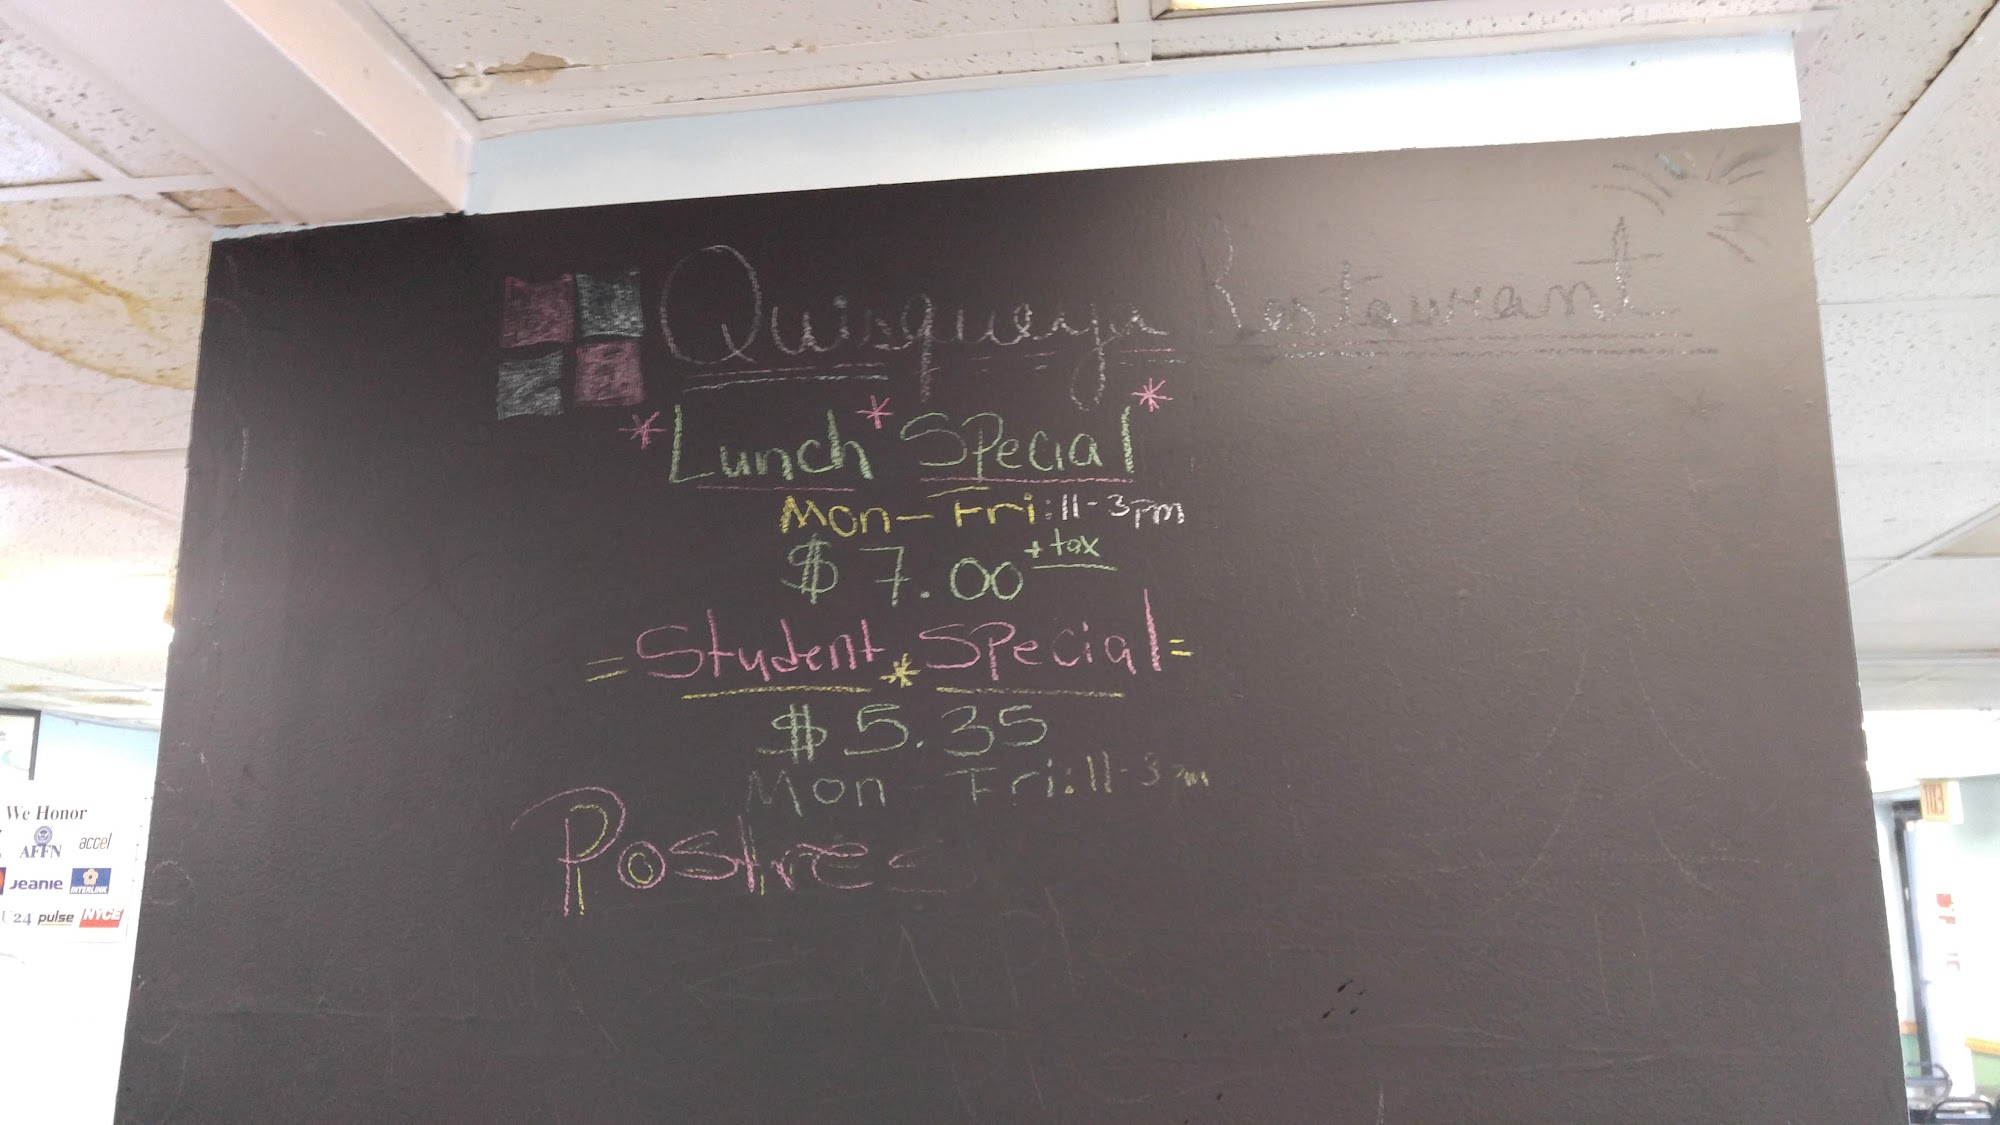 Quisqueya Restaurant
*Lunch*Special*
Mon-Fri:11-3pm
$7.00 + tax
=Student*Special=
$5.35
Mon-Fri:11-3pm
Postres
We Honor
AFFN accel
Jeanie INTERLINK
U24 pulse NYCE